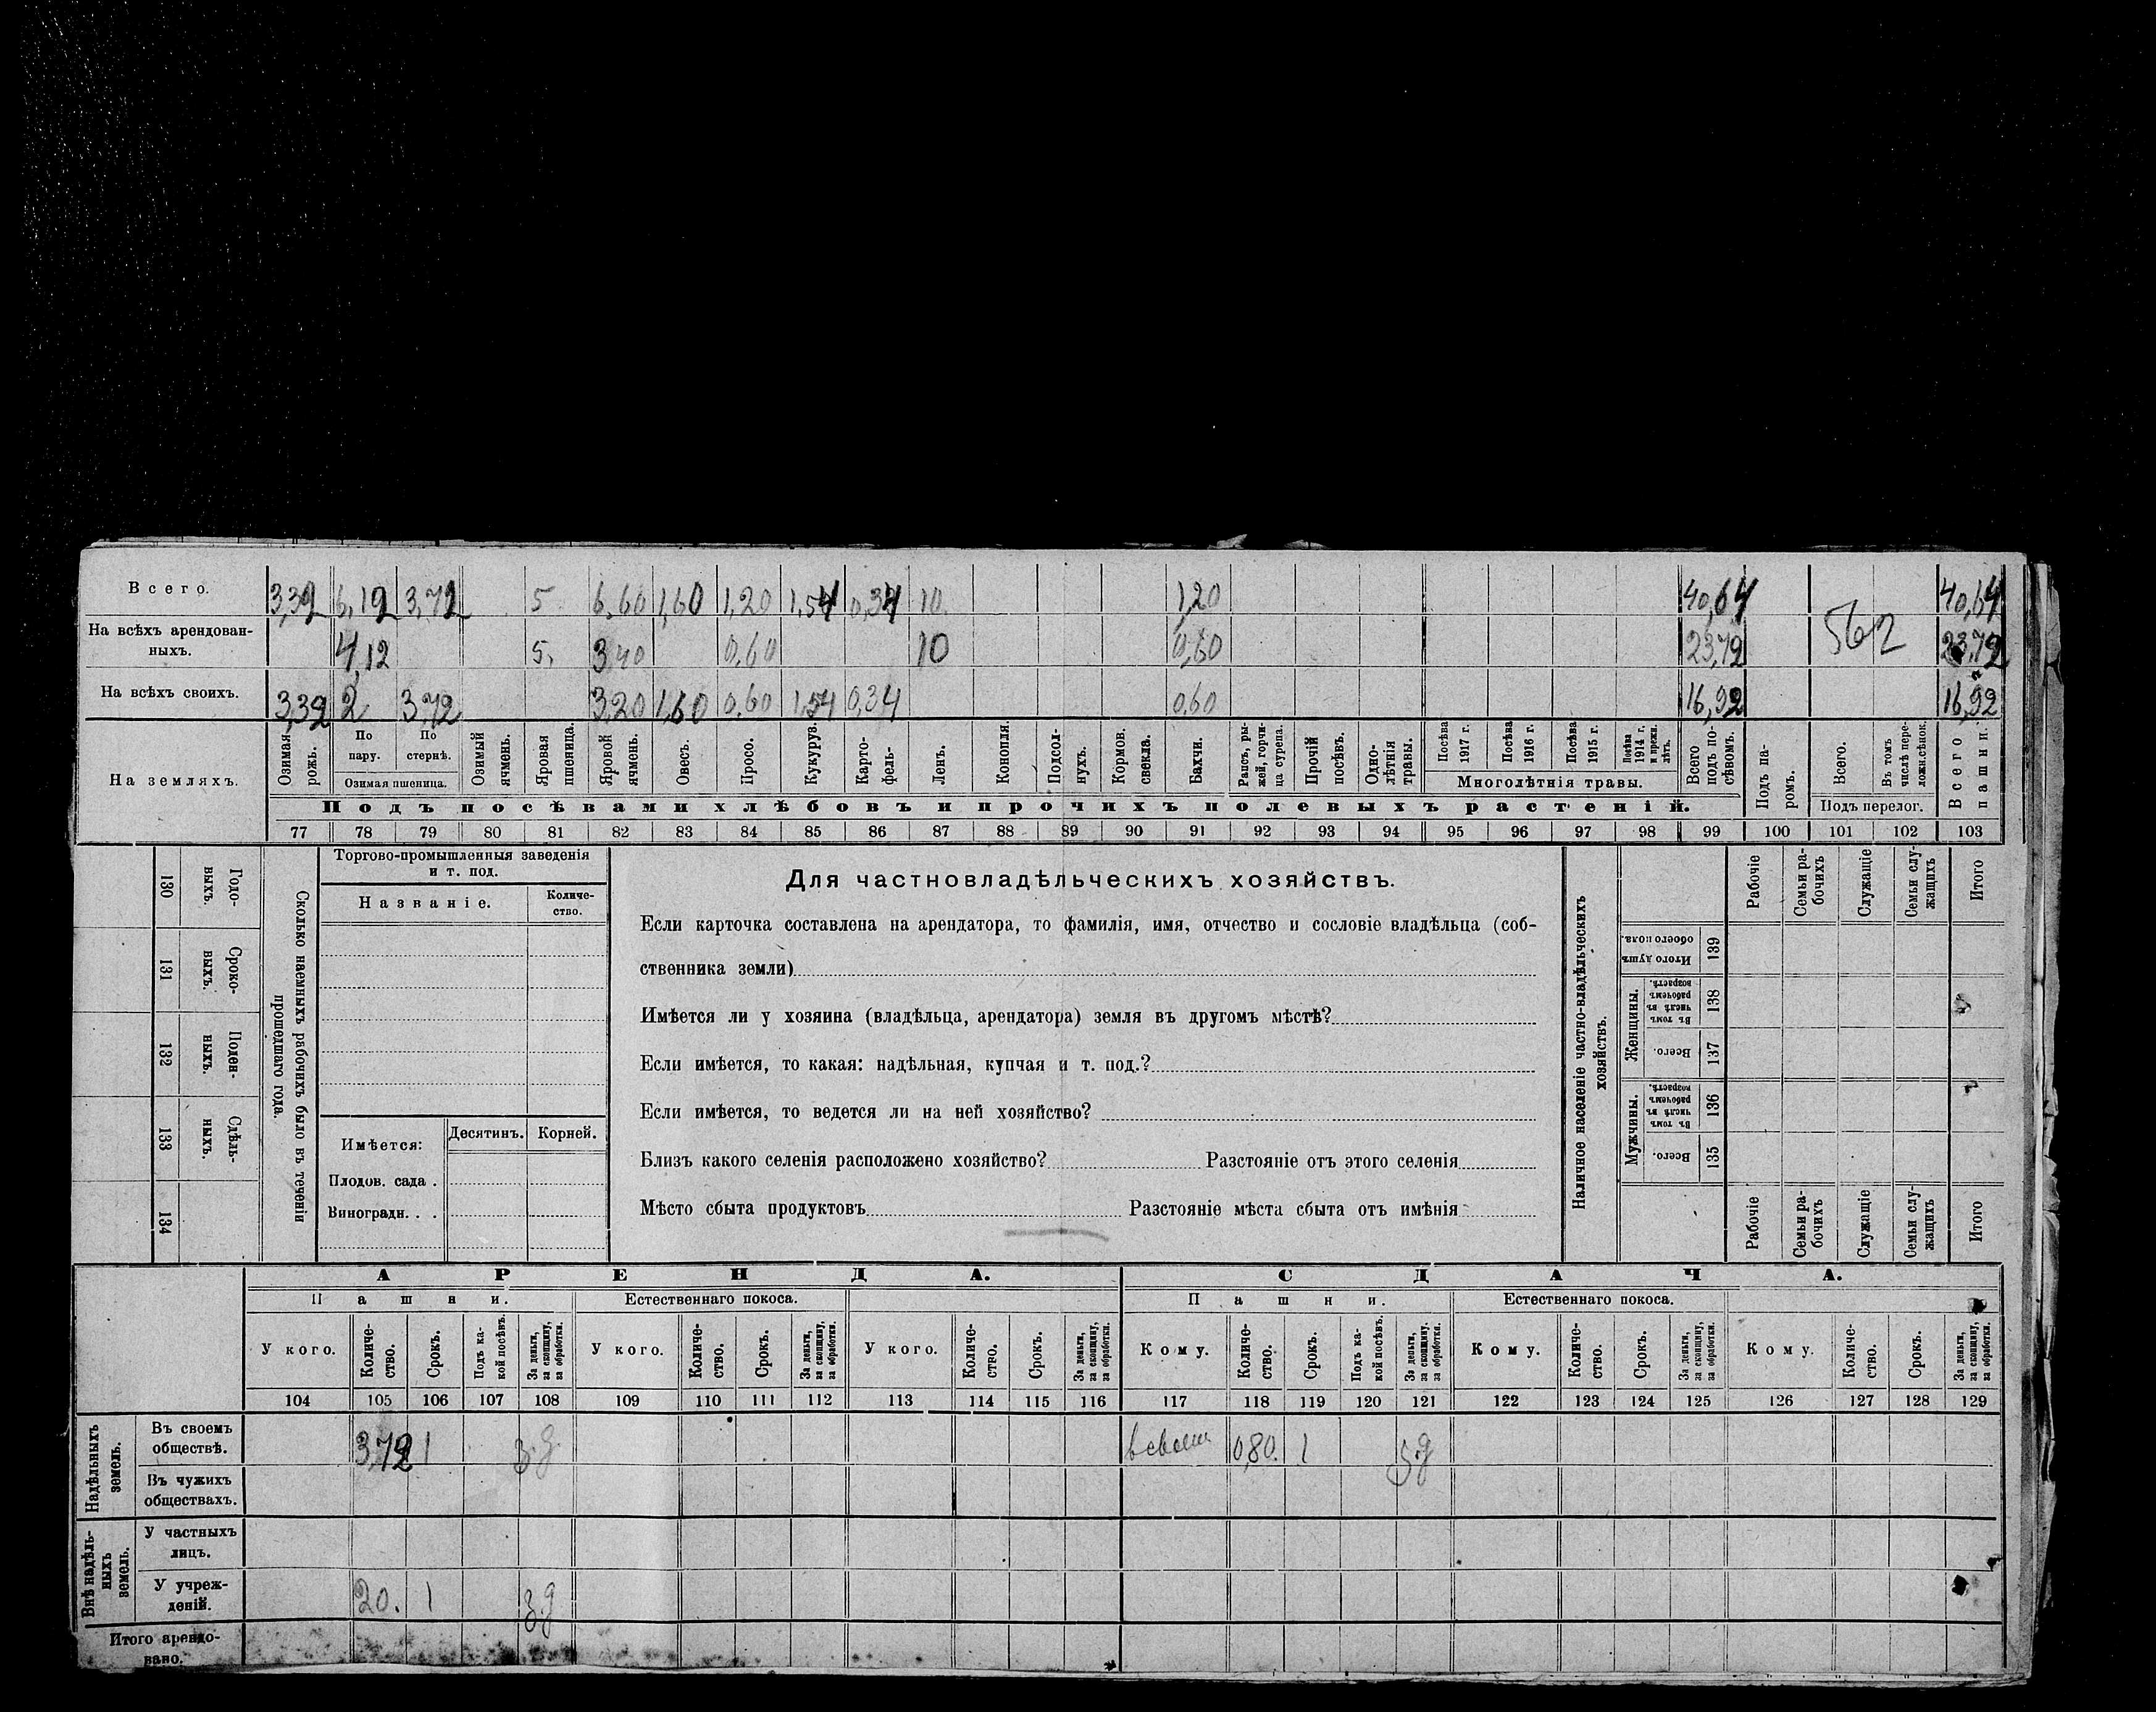 Всего. 3,39 6,12 3,72 5 6,60 1,60 1,20 1,54 0,34 10 1,20 40,64 40,64
На всѣхъ арендован-
ныхъ. 4,12 5. 3,40 0,60 10 0,60 23,72 562 23,72
На всѣхъ своихъ. 3,39 2 3,72 3,20 1,60 0,60 1,54 0,34 0,60 16,92 16,92
На земляхъ.
Озимая рожь.
По пару.
По стернѣ.
Озимая пшеница.
Озимый ячмень.
Яровая пшеница.
Яровой ячмень.
Овесъ.
Просо.
Кукуруза.
Карто-
фель-
Ленъ.
Конопля.
Подсол-
нухъ.
Кормов. свекла.
Бахчи.
Рапсъ, ры-
жей, горчи-
ца сурепа.
Прочій посѣвъ.
Одно-
лѣтнія травы.
Посѣва 1917 г.
Посѣва 1916 г.
Посѣва 1915 г.
Посѣва 1914 г. и прежн. лѣтъ.
Многолѣтнія травы.
Всего подъ по-
сѣвомъ.
Подъ па-
ромъ.
Всего.
Въ томъ числѣ пере-
ложн.сѣнок.
Подъ перелог.
Всего пашни.
Подъ посѣвами хлѣбовъ и прочихъ полевыхъ растеній.
77 78 79 80 81 82 83 84 85 86 87 88 89 90 91 92 93 94 95 96 97 98 99 100 101 102 103
130 Годо-
выхъ.
131 Сроко-
выхъ.
132 Поден-
ныхъ.
133 Сдѣль-
ныхъ.
134
Сколько наемныхъ рабочихъ было въ теченіи
прошедшаго года.
Торгово-промышленныя заведенія
и т. под.
Названіе. Количе-
ство.
Имѣется: Десятинъ. Корней.
Плодов. сада .
Виноградн. . .
Для частновладѣльческихъ хозяйствъ.
Если карточка составлена на арендатора, то фамилія, имя, отчество и сословіе владѣльца (соб-
ственника земли)
Имѣется ли у хозяина (владѣльца, арендатора) земля въ другомъ мѣстѣ?
Если имѣется, то какая: надѣльная, купчая и т. под.?
Если имѣется, то ведется ли на ней хозяйство?
Близъ какого селенія расположено хозяйство? Разстояніе отъ этого селенія
Мѣсто сбыта продуктовъ Разстояніе мѣста сбыта отъ имѣнія
Наличное населеніе частно-владѣльческихъ
хозяйствъ.
Рабочіе
Семьи ра-
бочихъ
Служащіе
Семьи слу-
жащихъ
Итого
Итого душъ обоего пола. 139
Женщины. Въ томъ числѣ въ рабочемъ возрастѣ. 138
Всего. 137
Мужчины. Въ томъ числѣ въ рабочемъ возрастѣ. 136
Всего. 135
Рабочіе
Семьи ра-
бочихъ
Служащіе
Семьи слу-
жащихъ
Итого
АРЕНДА. СДАЧА.
Пашни. Естественнаго покоса. Пашни. Естественнаго покоса.
У кого. Количе-
ство. Срокъ. Подъ ка-
кой посѣвъ. За деньги, за скопщину, за обработки. У кого. Количе-
ство. Срокъ. За деньги, за скопщину, за обработки. У кого. Количе-
ство. Срокъ. За деньги, за скопщину, за обработки. Кому. Количе-
ство. Срокъ. Подъ ка-
кой посѣвъ. За деньги, за скопщину, за обработки. Кому. Количе-
ство. Срокъ. За деньги, за скопщину, за обработки. Кому. Количе-
ство. Срокъ. За деньги, за скопщину, за обработки.
104 105 106 107 108 109 110 111 112 113 114 115 116 117 118 119 120 121 122 123 124 125 126 127 128 129
Надѣльныхъ земель.
Въ своемъ
обществѣ. 3,72 1 з.д. 0,80. 1 з.д
Въ чужихъ
обществахъ.
Внѣ надѣль-
ныхъ земель.
У частныхъ
лицъ.
У учреж-
деній. 20. 1 з.д
Итого арендо-
вано.